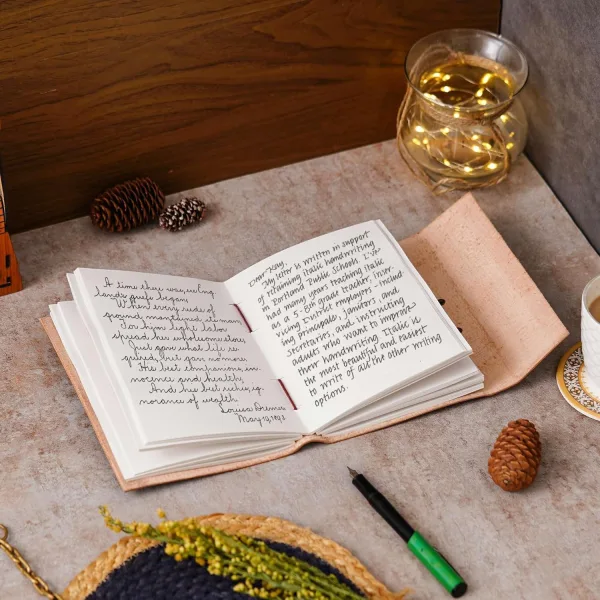 A time there was, ere
lands griefs began,
When every rude of
ground maintained its man,
For him light labor
spread her wholesome store,
Just gave what life re
quired, but gave no more.
His best companions, in-
nocence and health;
And his best riches, ig-
norance of wealth.
Louisa
May 19, 1893
Dear Kay,
My letter is written in support
of retaining italic handwriting
in Portland Public Schools. I've
had many years teaching italic
as a 5-8th grade teacher, inser-
vicing district employees, includ-
ing principals, janitors, and
secretaries, and instructing
adults who want to improve
their handwriting. Italic is
the most beautiful and easiest
to write of all the other writing
options.